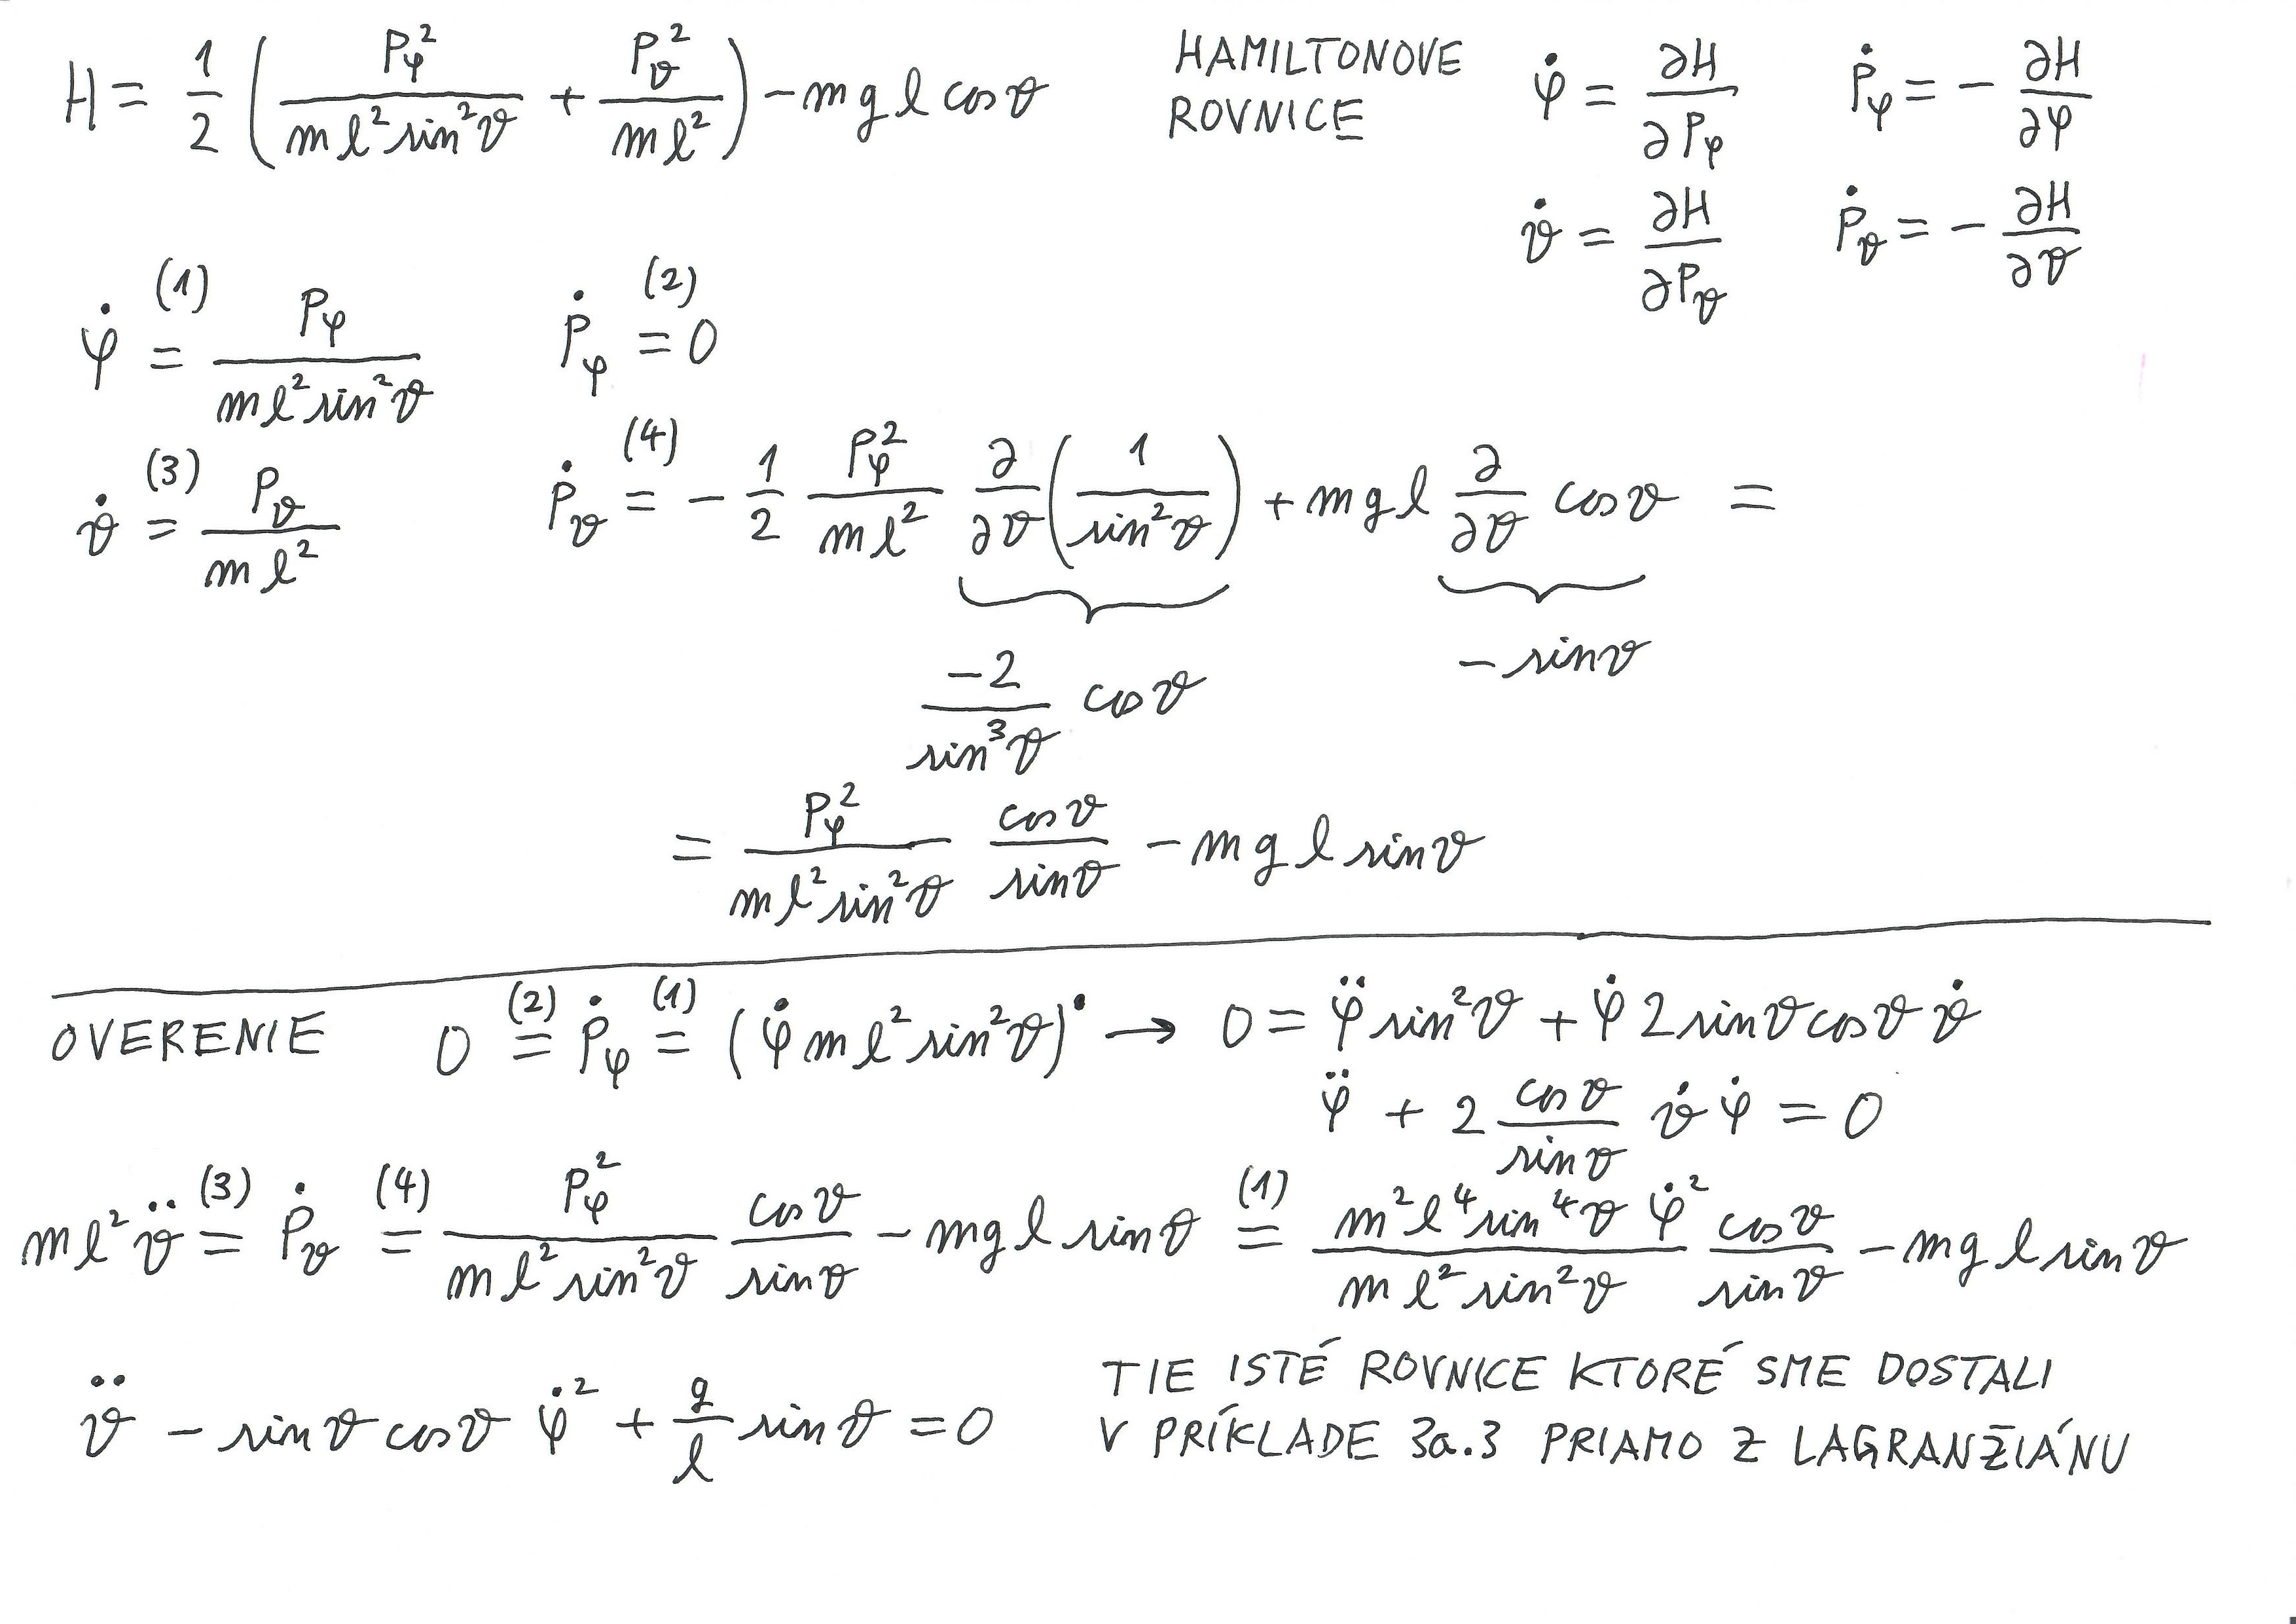 H = \frac{1}{2} \left( \frac{P_φ^2}{m l^2 sin^2 ϑ} + \frac{P_ϑ^2}{m l^2} \right) - m g l cos ϑ
HAMILTONOVE
ROVNICE
\dot{φ} = \frac{∂H}{∂P_φ} \dot{P}_φ = - \frac{∂H}{∂φ}
\dot{ϑ} = \frac{∂H}{∂P_ϑ} \dot{P}_ϑ = - \frac{∂H}{∂ϑ}
\dot{φ} \overset{(1)}{=} \frac{P_φ}{m l^2 sin^2 ϑ} \dot{P}_φ \overset{(2)}{=} 0
\dot{ϑ} \overset{(3)}{=} \frac{P_ϑ}{m l^2} \dot{P}_ϑ \overset{(4)}{=} - \frac{1}{2} \frac{P_φ^2}{m l^2} \underbrace{\frac{∂}{∂ϑ} \left( \frac{1}{sin^2 ϑ} \right)} + m g l \underbrace{\frac{∂}{∂ϑ} cos ϑ} =
\frac{-2}{sin^3 ϑ} cos ϑ - sin ϑ
= \frac{P_φ^2}{m l^2 sin^2 ϑ} \frac{cos ϑ}{sin ϑ} - m g l sin ϑ
OVERENIE 0 \overset{(2)}{=} \dot{P}_φ \overset{(1)}{=} (\dot{φ} m l^2 sin^2 ϑ)^{•} → 0 = \ddot{φ} sin^2 ϑ + \dot{φ} 2 sin ϑ cos ϑ \dot{ϑ}
\ddot{φ} + 2 \frac{cos ϑ}{sin ϑ} \dot{ϑ} \dot{φ} = 0
m l^2 \ddot{ϑ} \overset{(3)}{=} \dot{P}_ϑ \overset{(4)}{=} \frac{P_φ^2}{m l^2 sin^2 ϑ} \frac{cos ϑ}{sin ϑ} - m g l sin ϑ \overset{(1)}{=} \frac{m^2 l^4 sin^4 ϑ \dot{φ}^2}{m l^2 sin^2 ϑ} \frac{cos ϑ}{sin ϑ} - m g l sin ϑ
\ddot{ϑ} - sin ϑ cos ϑ \dot{φ}^2 + \frac{g}{l} sin ϑ = 0
TIE ISTÉ ROVNICE KTORÉ SME DOSTALI
V PRÍKLADE 3a.3 PRIAMO Z LAGRANŽIÁNU